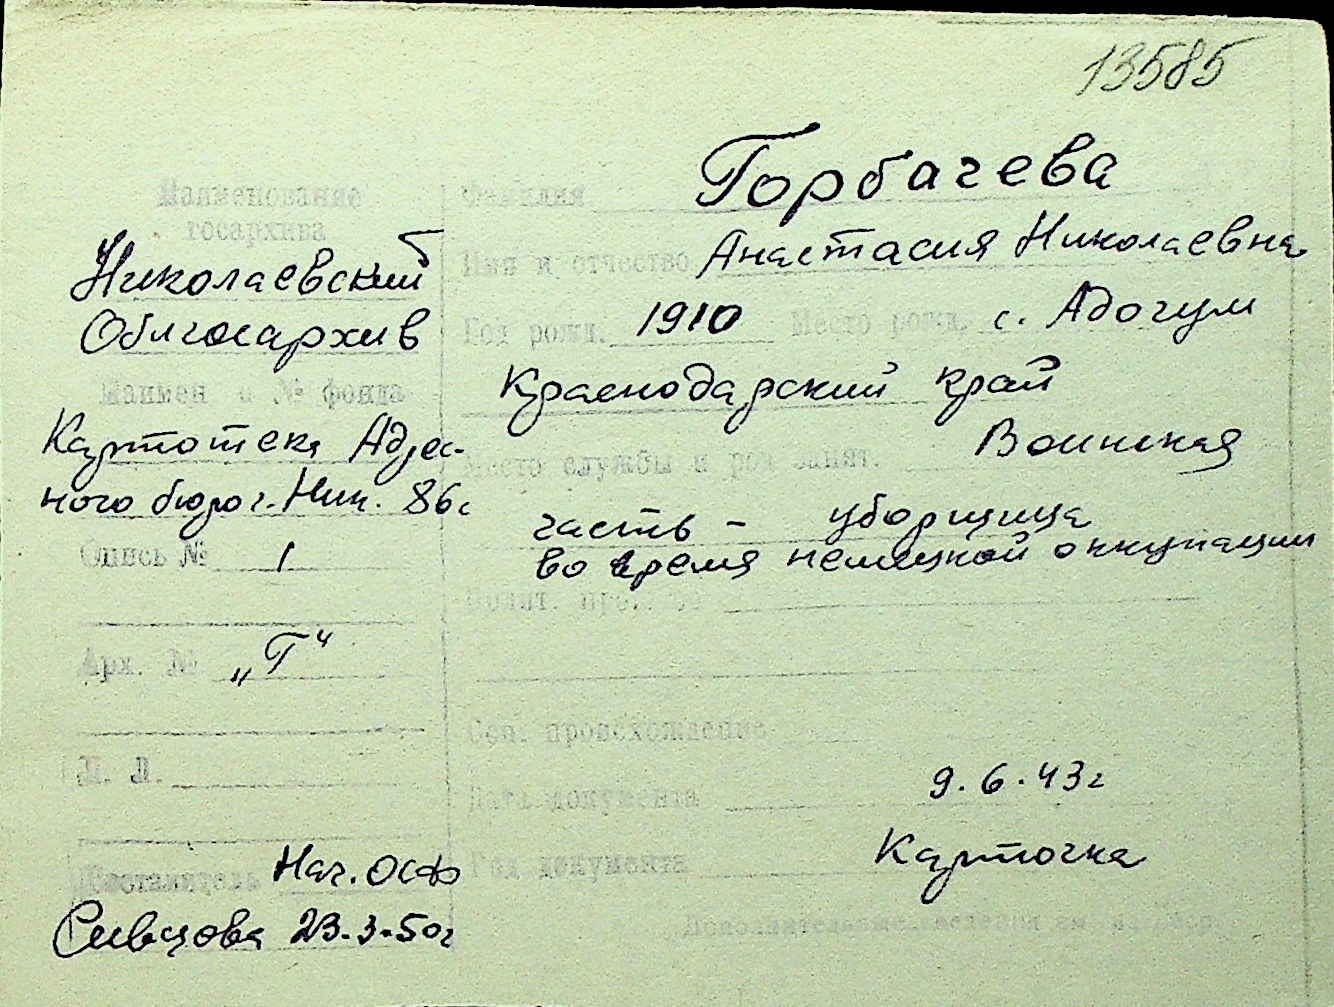 13585
Наименование
госархива
Николаевский
Облгосархив
Наимен и № фонда
Картотека Адрес-
ного бюро г. Ник. 86с
Опись № 1
Арх. № „Г“
Л. Л.
Составитель Нач. ОСФ
Сивцова 23.3.50г
Фамилия Горбачева
Имя и отчество Анастасия Николаевна
Год рожд. 1910 Место рожд. с. Адогум
Краснодарский край
Место службы и род занят. Воинская
часть - уборщица
во время немецкой оккупации
Соц. происхождение
Дата документа 9.6.43г
Род документа Карточка
Дополнительные сведения см. на обор.